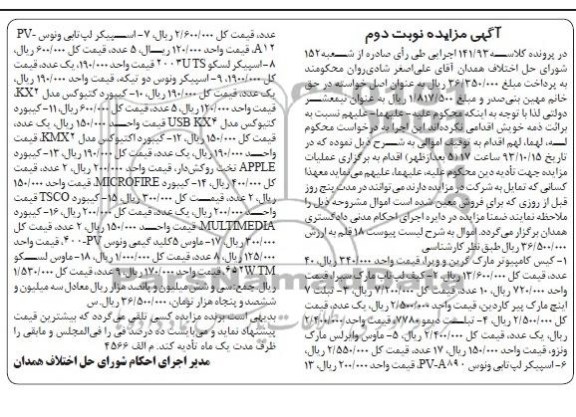 آگهی مزایده نوبت دوم
در پرونده کلاسه ۱۴۱/۹۳ اجرایی طی رأی صادره از شعبه ۱۵۲
شورای حل اختلاف همدان آقای علی‌اصغر شادی‌روان محکومند
به پرداخت مبلغ ۳۶/۳۵۰/۰۰۰ ریال به عنوان اصل خواسته در حق
خانم مهین بنی‌صدر و مبلغ ۱/۸۱۷/۵۰۰ ریال به عنوان نیم‌عشر
دولتی لذا با توجه به اینکه محکوم علیه- علیهما- علیهم نسبت به
برائت ذمه خویش اقدامی نکرده‌اند این اجرا به درخواست محکوم
له، لهما، لهم اقدام به توقیف اموالی به شرح ذیل نموده که در
تاریخ ۹۳/۱۰/۱۵ ساعت ۱۷ بعدازظهر اقدام به برگزاری عملیات
مزایده جهت تأدیه دین محکوم علیه، علیهما، علیهم می‌نماید لهذا
کسانی که تمایل به شرکت در مزایده دارند می‌توانند در مدت پنج روز
قبل از روزی که برای فروش معین شده است اموال مشروحه ذیل را
ملاحظه نمایند ضمنا مزایده در دایره اجرای احکام مدنی دادگستری
همدان برگزار می‌گردد. اموال به شرح لیست پیوست ۱۸ قلم به ارزش
۳۶/۵۰۰/۰۰۰ ریال طبق نظر کارشناسی
۱- کیس کامپیوتر مارک گرین و ویرا، قیمت واحد ۳۴۰/۰۰۰ ریال، ۴۰
عدد، قیمت کل ۱۳/۶۰۰/۰۰۰ ریال، ۲- کیف لپ تاپ مارک قیمت
واحد ۷۲۰/۰۰۰ ریال، ۱۰ عدد، قیمت کل ۷/۲۰۰/۰۰۰ ریال، ۳- تبلت ۷
اینچ مارک پیر کاردین، قیمت واحد ۲/۵۰۰/۰۰۰ ریال، یک عدد، قیمت
کل ۲/۵۰۰/۰۰۰ ریال، ۴- تبلت دیمو ۷۷۸۰، قیمت واحد ۲/۴۰۰/۰۰۰
ریال، یک عدد، قیمت کل ۲/۴۰۰/۰۰۰ ریال، ۵- ماوس وایرلس مارک
ونزو، قیمت واحد ۱۵۰/۰۰۰ ریال، ۱۷ عدد، قیمت کل ۲/۵۵۰/۰۰۰ ریال،
۶- اسپیکر لپ‌تاپی ونوس PV-A۸۹۰، قیمت واحد ۲۰۰/۰۰۰ ریال، ۱۳
عدد، قیمت کل ۲/۶۰۰/۰۰۰ ریال، ۷- اسپیکر لپ‌تاپی ونوس PV-
A۱۲، قیمت واحد ۱۲۰/۰۰۰ ریال، ۵ عدد، قیمت کل ۶۰۰/۰۰۰ ریال،
۸- اسپیکر لسکو ۲۰۰۳UTS قیمت واحد ۱۹۰/۰۰۰، یک عدد، قیمت
کل ۱۹۰/۰۰۰، ۹- اسپیکر ونوس دو تیکه، قیمت واحد ۱۹۰/۰۰۰ ریال،
یک عدد، قیمت کل ۱۹۰/۰۰۰ ریال، ۱۰- کیبورد کتیوکس مدل KX۲،
قیمت واحد ۱۲۰/۰۰۰ ریال، ۵ عدد، قیمت کل ۶۰۰/۰۰۰ ریال، ۱۱- کیبورد
کتیوکس مدل USB KX۴ قیمت واحد ۱۵۰/۰۰۰ ریال، یک عدد،
قیمت کل ۱۵۰/۰۰۰ ریال، ۱۲- کیبورد اکتیوکس مدل KMX۲، قیمت
واحد ۱۹۰/۰۰۰ ریال، یک عدد، قیمت کل ۱۹۰/۰۰۰ ریال، ۱۳- کیبورد
APPLE تخت روکش‌دار، قیمت واحد ۲۰۰/۰۰۰ ریال، ۲ عدد، قیمت
کل ۴۰۰/۰۰۰ ریال، ۱۴- کیبورد MICROFIRE، قیمت واحد ۱۵۰/۰۰۰
ریال، ۲ عدد، قیمت کل ۳۰۰/۰۰۰ ریال، ۱۵- کیبورد TSCO قیمت
واحد ۲۰۰/۰۰۰ ریال، یک عدد، قیمت کل ۲۰۰/۰۰۰ ریال، ۱۶- کیبورد
MULTIMEDIA، قیمت واحد ۱۵۰/۰۰۰ ریال، ۲ عدد، قیمت کل
۳۰۰/۰۰۰ ریال، ۱۷- ماوس ۵ کلید گیمی ونوس PV-۴۰۰، قیمت واحد
۱۲۵/۰۰۰ ریال، ۸ عدد، قیمت کل ۱/۰۰۰/۰۰۰ ریال، ۱۸- ماوس لسکو
۴۵۲WTM، قیمت واحد ۱۷۰/۰۰۰ ریال، ۹ عدد، قیمت کل ۱/۵۳۰/۰۰۰
ریال جمع سی و شش میلیون و پانصد هزار ریال معادل سه میلیون و
ششصد و پنجاه هزار تومان، ۳۶/۵۰۰/۰۰۰ ریال.س
بدیهی است برنده مزایده کسی تلقی می‌گردد که بیشترین قیمت
پیشنهاد نماید و می‌بایست ده درصد فی را فی‌المجلس و مابقی را
ظرف مدت یک ماه تأدیه کند. م الف ۴۵۶۶
مدیر اجرای احکام شورای حل اختلاف همدان